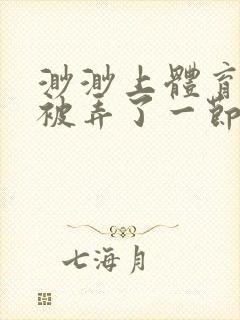 渺渺上體育
被弄了一節
七海月